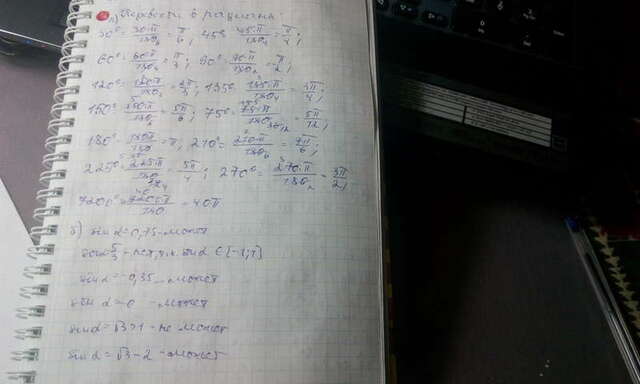 а) Перевести в радианы:
30° = 30·π/180 = π/6; 45° = 45·π/180 = π/4;
60° = 60·π/180 = π/3; 90° = 90·π/180 = π/2;
120° = 120·π/180 = 2π/3; 135° = 135·π/180 = 3π/4;
150° = 150·π/180 = 5π/6; 75° = 75·π/180 = 5π/12;
180° = 180π/180 = π; 210° = 210·π/180 = 7π/6;
225° = 225·π/180 = 5π/4; 270° = 270·π/180 = 3π/2;
7200° = 7200·π/180 = 40π
б) sin α = 0,75 - может
sin α = 5/3 - нет, т.к. sin α ∈ [-1;1]
sin α = -0,35 - может
sin α = 0 - может
sin α = √3 > 1 - не может
sin α = √3 - 2 - может